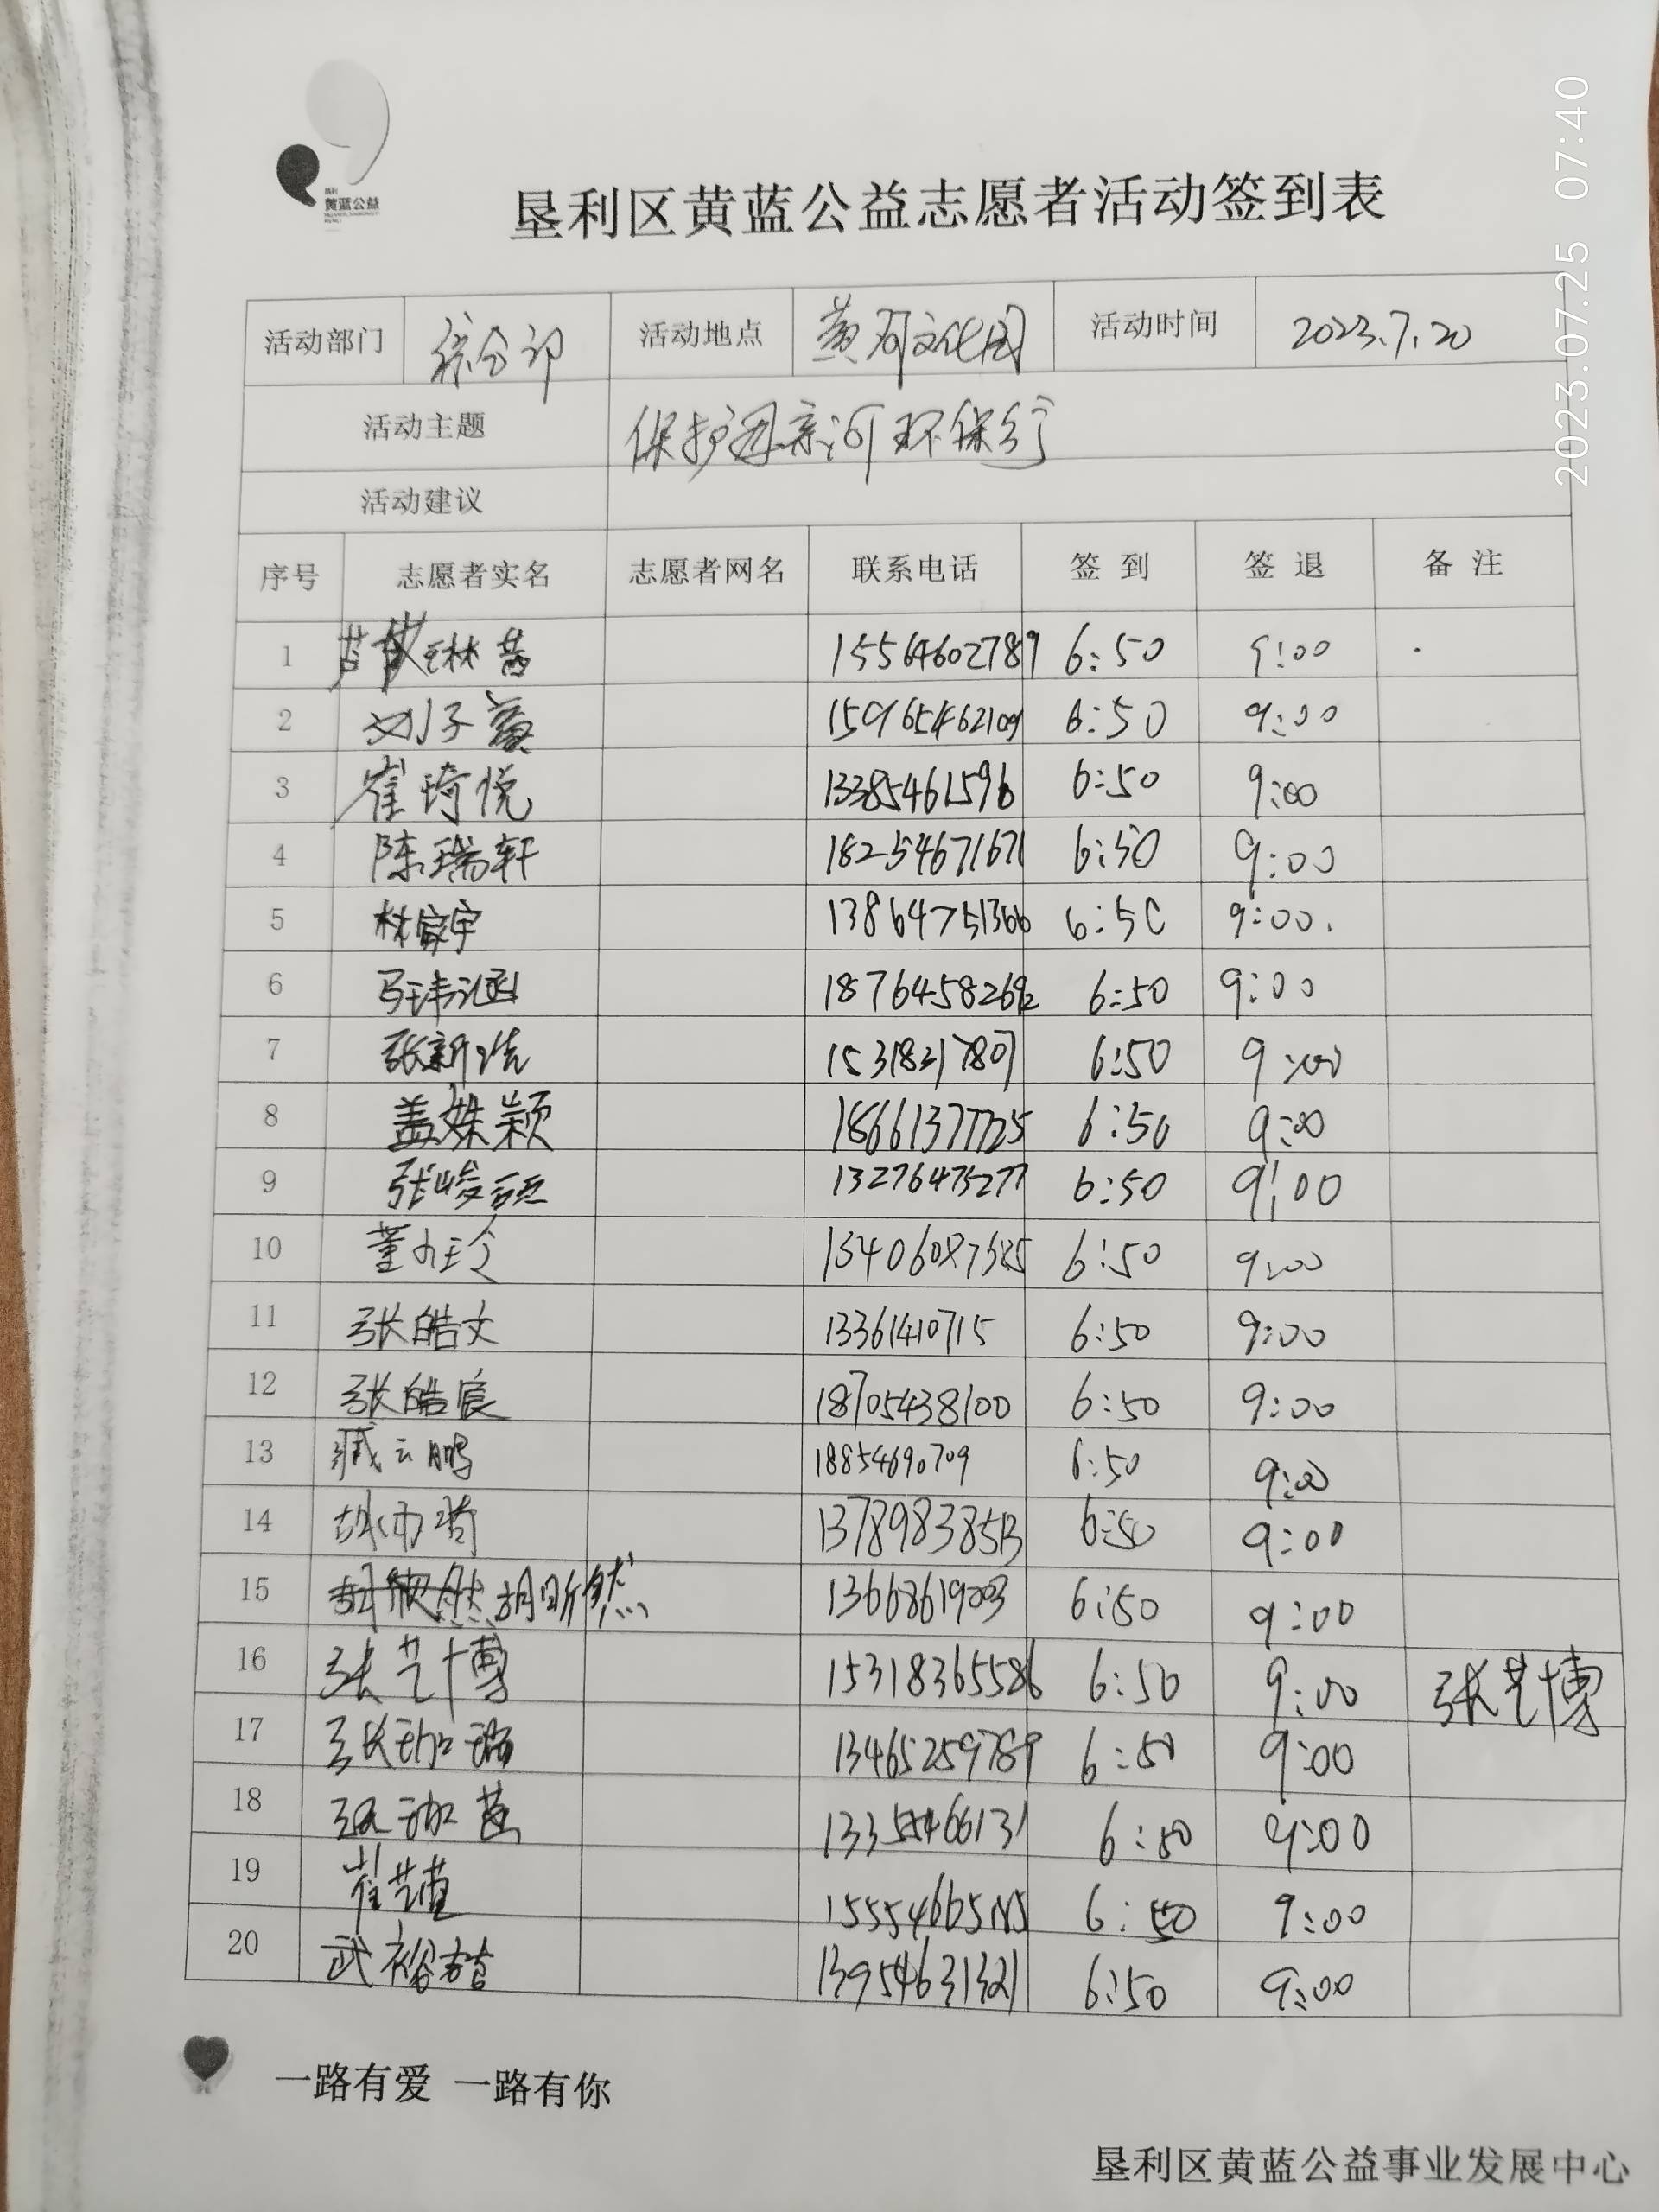 黄蓝公益
2023.07.25 07:40
垦利区黄蓝公益志愿者活动签到表
活动部门 综合部 活动地点 黄河文化园 活动时间 2023.7.20
活动主题 保护母亲河环保行
活动建议
序号 志愿者实名 志愿者网名 联系电话 签到 签退 备注
1 琳茜 15564602789 6:50 9:00
2 刘子萱 15965462109 6:50 9:00
3 崔琦悦 13385461596 6:50 9:00
4 陈瑞轩 18254671671 6:50 9:00
5 林宸宇 13864751366 6:50 9:00
6 马玮涵 6:50 9:00
7 张新浩 15318317807 6:50 9:00
8 盖姝颖 18661377725 6:50 9:00
9 张峻硕 13276475277 6:50 9:00
10 董 玲 6:50 9:00
11 张皓文 13361410715 6:50 9:00
12 张皓宸 18705438100 6:50 9:00
13 臧云鹏 18854690709 6:50 9:00
14 胡雨琦 13789838513 6:50 9:00
15 胡昕然 13668619003 6:50 9:00
16 张艺博 15318365586 6:50 9:00 张艺博
17 张珈瑞 13465259789 6:50 9:00
18 珈茵 6:50 9:00
19 崔艺萱 6:50 9:00
20 武裕喆 13954631321 6:50 9:00
一路有爱 一路有你
垦利区黄蓝公益事业发展中心